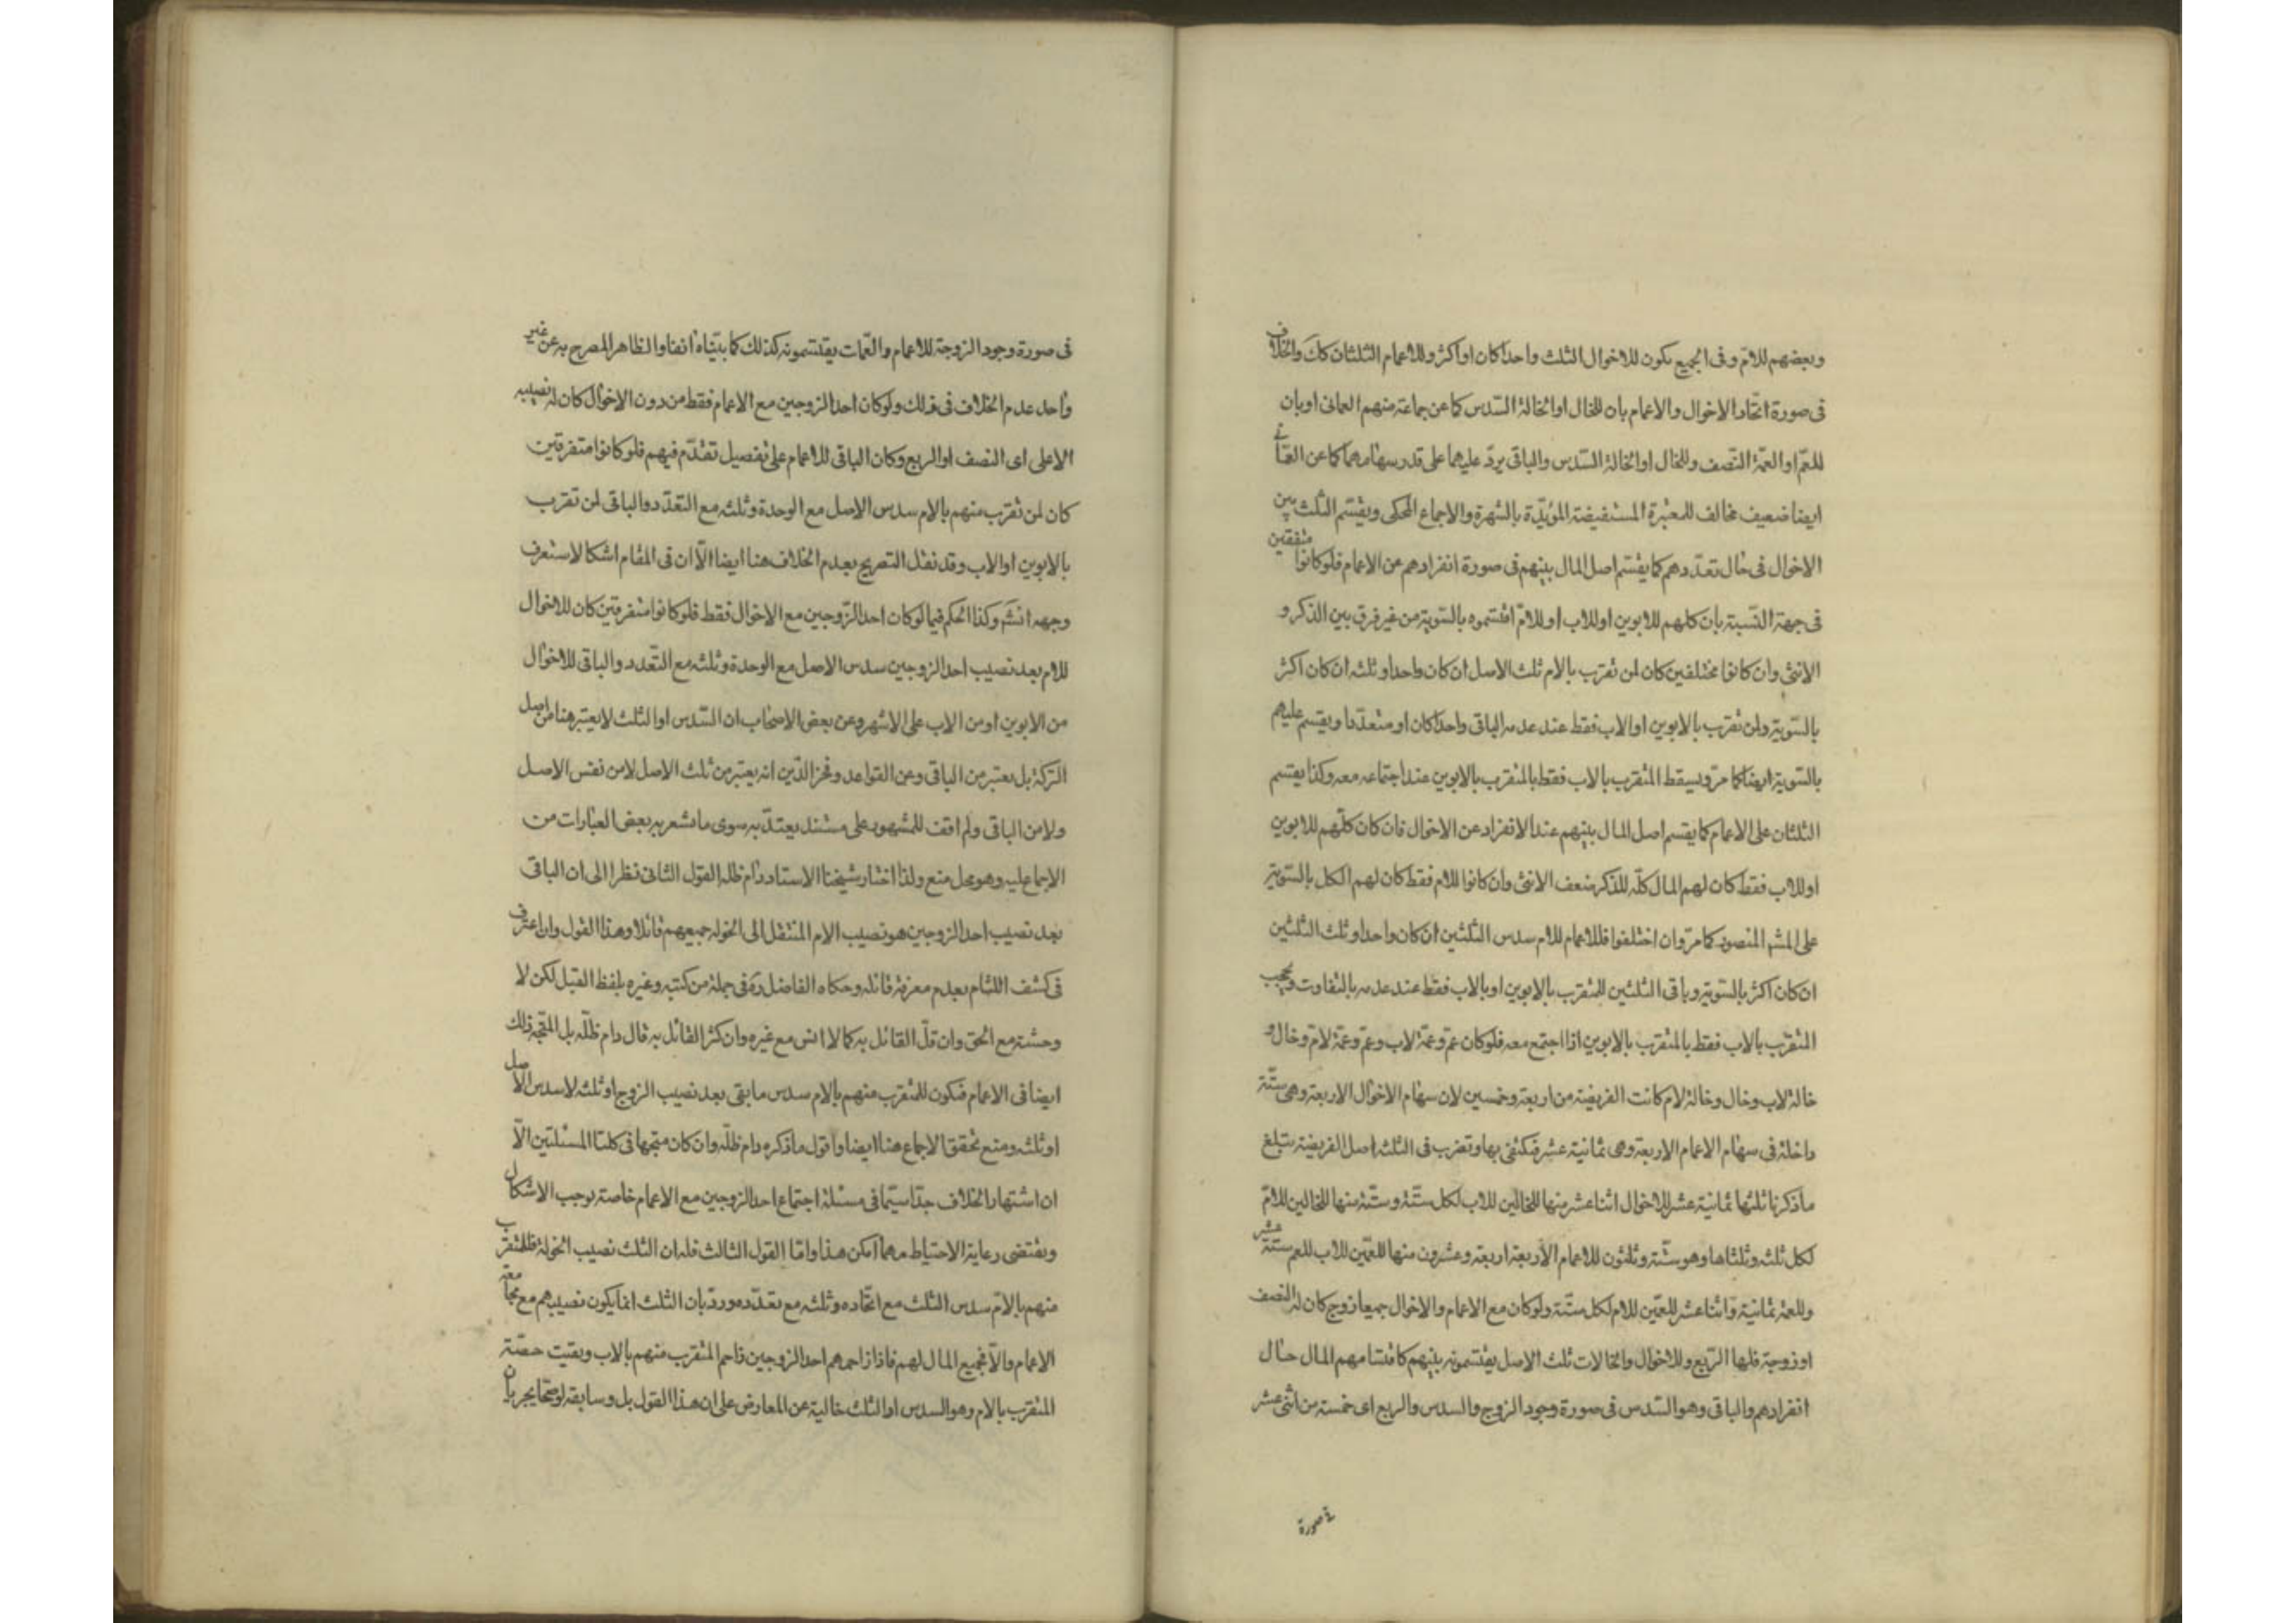 وبعضهم للامّ وفى الجميع يكون للاخوال الثلث واحدا كان او اكثر وللاعمام الثلثان كك والخلاف
فى صورة اتّحاد الاخوال والاعمام بان للخال او الخالة السّدس كما عن جماعة منهم العمانى او بان
للعمّ او العمّة النّصف وللخال او الخالة السّدس والباقى يردّ عليهما على قدر سهامهما كما عن
ايضا ضعيف مخالف للمعتبرة المستفيضة المؤيّدة بالشهرة والاجماع المحكى ويقتسم الثلث بين
الاخوال فى حال تعدّدهم كما يقتسم اصل المال بينهم فى صورة انفرادهم عن الاعمام فلو كانوا متفقين
فى جهة النّسبة بان كلهم للابوين او للاب او للامّ اقتسموه بالسّوية من غير فرق بين الذكر و
الانثى وان كانوا مختلفين كان لمن تقرّب بالام ثلث الاصل ان كان واحدا وثلثه ان كان اكثر
بالسّوية ولمن تقرّب بالابوين او الاب فقط عند عدمه الباقى واحدا كان او متعدّدا ويقسم عليهم
بالسّوية ايضا كما مرّ ويسقط المتقرب بالاب فقط بالمتقرب بالابوين عند اجتماعه معه وكذا يقتسم
الثلثان على الاعمام كما يقتسم اصل المال بينهم عند الانفراد عن الاخوال فان كان كلّهم للابوين
او للاب فقط كان لهم المال كلّه للذكر ضعف الانثى وان كانوا للام فقط كان لهم الكل بالسّوية
على المشهر المنصور كما مرّ وان اختلفوا فللاعمام للام سدس الثلثين ان كان واحدا وثلث الثلثين
ان كان اكثر بالسّوية وباقى الثلثين للمتقرب بالابوين او بالاب فقط عند عدمه بالتفاوت ويحجب
المتقرب بالاب فقط بالمتقرب بالابوين اذا اجتمع معه فلو كان عمّ وعمّة لاب وعمّ وعمّة لامّ وخال و
خالة لاب وخال وخالة لام كانت الفريضة من اربعة وخمسين لان سهام الاخوال الاربعة وهى ستّة
داخلة فى سهام الاعمام الاربعة وهى ثمانية عشر فيكتفى بها وتضرب فى الثلثة اصل الفريضة تبلغ
ما ذكرنا ثلثها ثمانية عشر للاخوال اثنا عشر منها للخالين للاب لكل ستّة وستّة منها للخالين للامّ
لكل ثلثة وثلثاها وهو ستّة وثلثون للاعمام الاربعة اربعة وعشرون منها للعمّين للاب للعم ستّة عشر
وللعمة ثمانية واثنا عشر للعمّين للام لكل ستّة ولو كان مع الاعمام والاخوال جميعا زوج كان له النصف
او زوجة فلها الرّبع وللاخوال والخالات ثلث الاصل يقتسمونه بينهم كاقتسامهم المال حال
انفرادهم والباقى وهو السّدس فى صورة وجود الزوج والسدس والربع اى خمسة من اثنى عشر
فى صورة
فى صورة وجود الزوجة للاعمام والعمّات يقتسمونه كذلك كما بيّناه انفا والظاهر المصرح به عن غير
واحد عدم الخلاف فى ذلك ولو كان احد الزوجين مع الاعمام فقط من دون الاخوال كان له نصيبه
الاعلى اى النصف او الربع وكان الباقى للاعمام على تفصيل تقدّم فيهم فلو كانوا متفرقين
كان لمن تقرّب منهم بالام سدس الاصل مع الوحدة وثلثه مع التعدّد والباقى لمن تقرب
بالابوين او الاب وقد نقل التصريح بعدم الخلاف هنا ايضا الّا ان فى المقام اشكالا ستعرف
وجهه انشم وكذا الحكم فيما لو كان احد الزّوجين مع الاخوال فقط فلو كانوا متفرقين كان للاخوال
للام بعد نصيب احد الزوجين سدس الاصل مع الوحدة وثلثه مع التّعدد والباقى للاخوال
من الابوين او من الاب على الاشهر وعن بعض الاصحاب ان السّدس او الثلث لا يعتبر هنا من اصل
التركة بل يعتبر من الباقى وعن القواعد وفخر الدّين انه يعتبر من ثلث الاصل لا من نفس الاصل
ولا من الباقى ولم اقف للمشهور على مستند يعتدّ به سوى ما يشعر به بعض العبارات من
الاجماع عليه وهو محل منع ولذا اختار شيخنا الاستاد دام ظله القول الثانى نظرا الى ان الباقى
بعد نصيب احد الزوجين هو نصيب الام المنتقل الى الخولة جميعهم قائلا وهذا القول وان اعترف
فى كشف اللثام بعدم معرفة قائله وحكاه الفاضل ره فى جملة من كتبه وغيره بلفظ القيل لكن لا
وحشة مع الحق وان قلّ القائل به كما لا انس مع غيره وان كثر القائل به قال دام ظلّه بل المتّجه ذلك
ايضا فى الاعمام فيكون للمتقرب منهم بالام سدس ما بقى بعد نصيب الزوج او ثلثه لا سدس الاصل
او ثلثه ومنع تحقق الاجماع هنا ايضا واقول ما ذكره دام ظلّه وان كان متجها فى كلتا المسئلتين الّا
ان اشتهار الخلاف جدّا سيّما فى مسئلة اجتماع احد الزوجين مع الاعمام خاصة يوجب الاشكال
ويقتضى رعاية الاحتياط مهما امكن هذا وامّا القول الثالث فلان الثلث نصيب الخولة فللمتقرّب
منهم بالامّ سدس الثلث مع اتّحاده وثلثه مع تعدّده وردّ بان الثلث انما يكون نصيبهم مع مجامعة
الاعمام والّا فجميع المال لهم فاذا زاحمهم احد الزوجين زاحم المتقرب منهم بالاب وبقيت حصّة
المتقرب بالام وهو السدس او الثلث خالية عن المعارض على ان هذا القول بل وسابقه لو صحّا يجريان